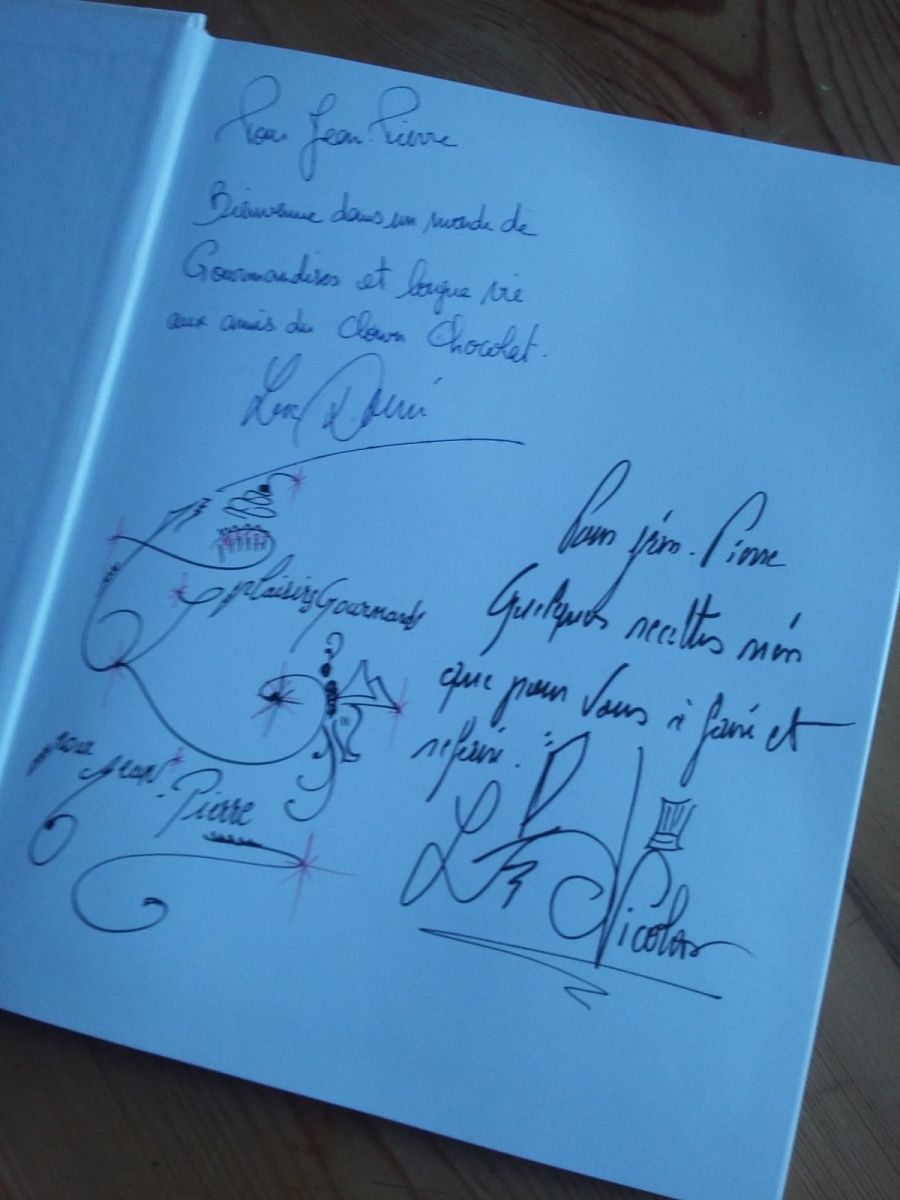 Pour Jean-Pierre
Bienvenue dans un monde de
Gourmandises et longue vie
aux amis du Clown Chocolat.
Luc
plaisirs Gourmands
pour
Jean-
Pierre
Pour Jean-Pierre
Quelques recettes rien
que pour Vous à faire et
refaire.
Nicolas